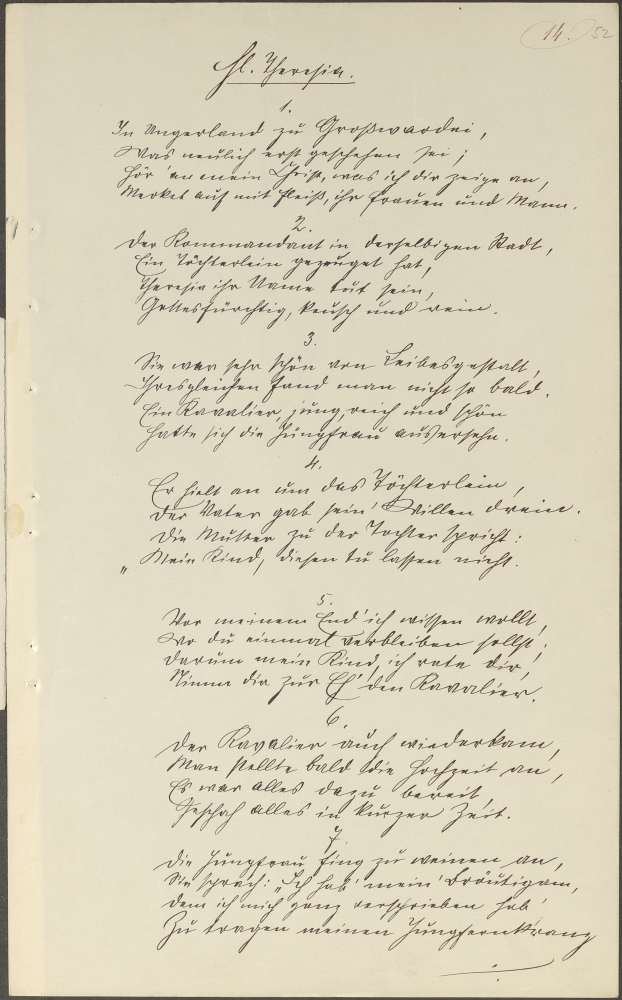 14. 52
Hl. Theresia.
1.
In Ungerland zu Großwardei,
Was neulich erst geschehen sei;
Hör' an mein Christ, was ich dir zeige an,
Merket auf mit Fleiß, ihr Frauen und Mann.
2.
Der Kommandant in derselbigen Stadt,
Ein Töchterlein gezeuget hat,
Theresia ihr Name tut sein,
Gottesfürchtig, keusch und rein.
3.
Sie war sehr schön von Leibesgestalt,
Ihresgleichen fand man nicht so bald.
Ein Kavalier, jung, reich und schön
Hatte sich die Jungfrau ausersehn.
4.
Er hielt an um das Töchterlein,
Der Vater gab sein' Willen drein.
Die Mutter zu der Tochter spricht:
„Mein Kind, diesen tu lassen nicht.
5.
Vor meinem End' ich wissen wollt,
Wo du einmal verbleiben sollst;
Darum mein Kind, ich rate dir,
Nimm dir zur Eh' den Kavalier.
6.
Der Kavalier auch wiederkam,
Man stellte bald die Hochzeit an,
Es war alles dazu bereit
Geschah alles in kurzer Zeit.
7.
Die Jungfrau fing zu weinen an,
Sie sprach: „Ich hab' mein' Bräutigam,
Dem ich mich ganz verschrieben hab'
Zu tragen meinen Jungfernkranz